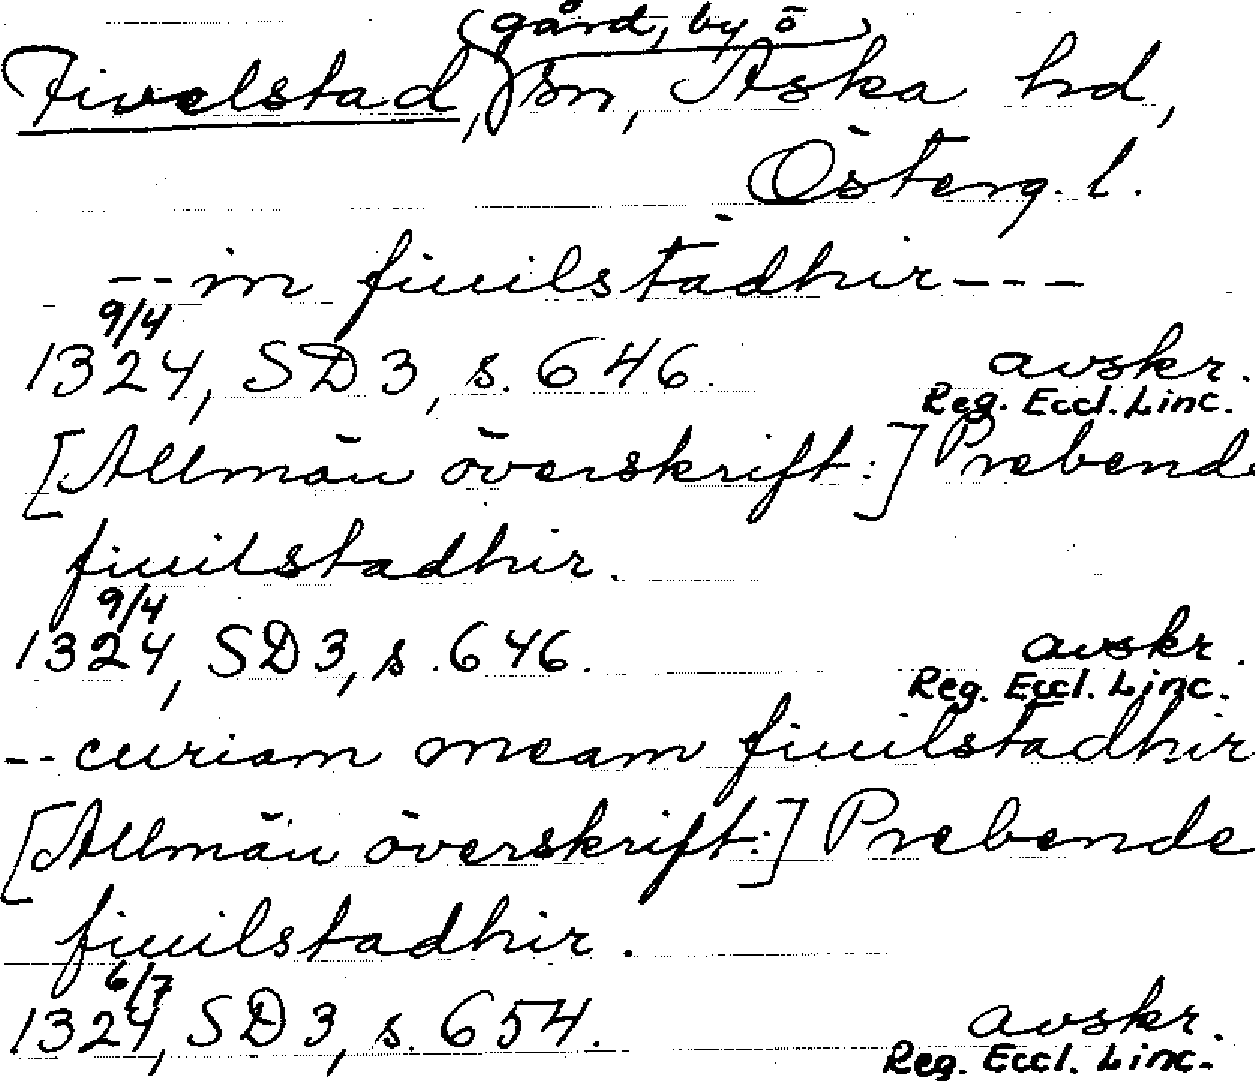 (gård, by ö)
Fivelstad, sn, Aska hd,
Österg. l.
-- in fiuilstadhir ---
9/4
1324, SD 3, s. 646. avskr.
Reg. Eccl. Linc.
[Allmän överskrift:] Prebende
fiuilstadhir.
9/4
1324, SD 3, s. 646. avskr.
Reg. Eccl. Linc.
-- curiam meam fiuilstadhir
[Allmän överskrift:] Prebende
fiuilstadhir.
6/7
1324, SD 3, s. 654. avskr.
Reg. Eccl. Linc.